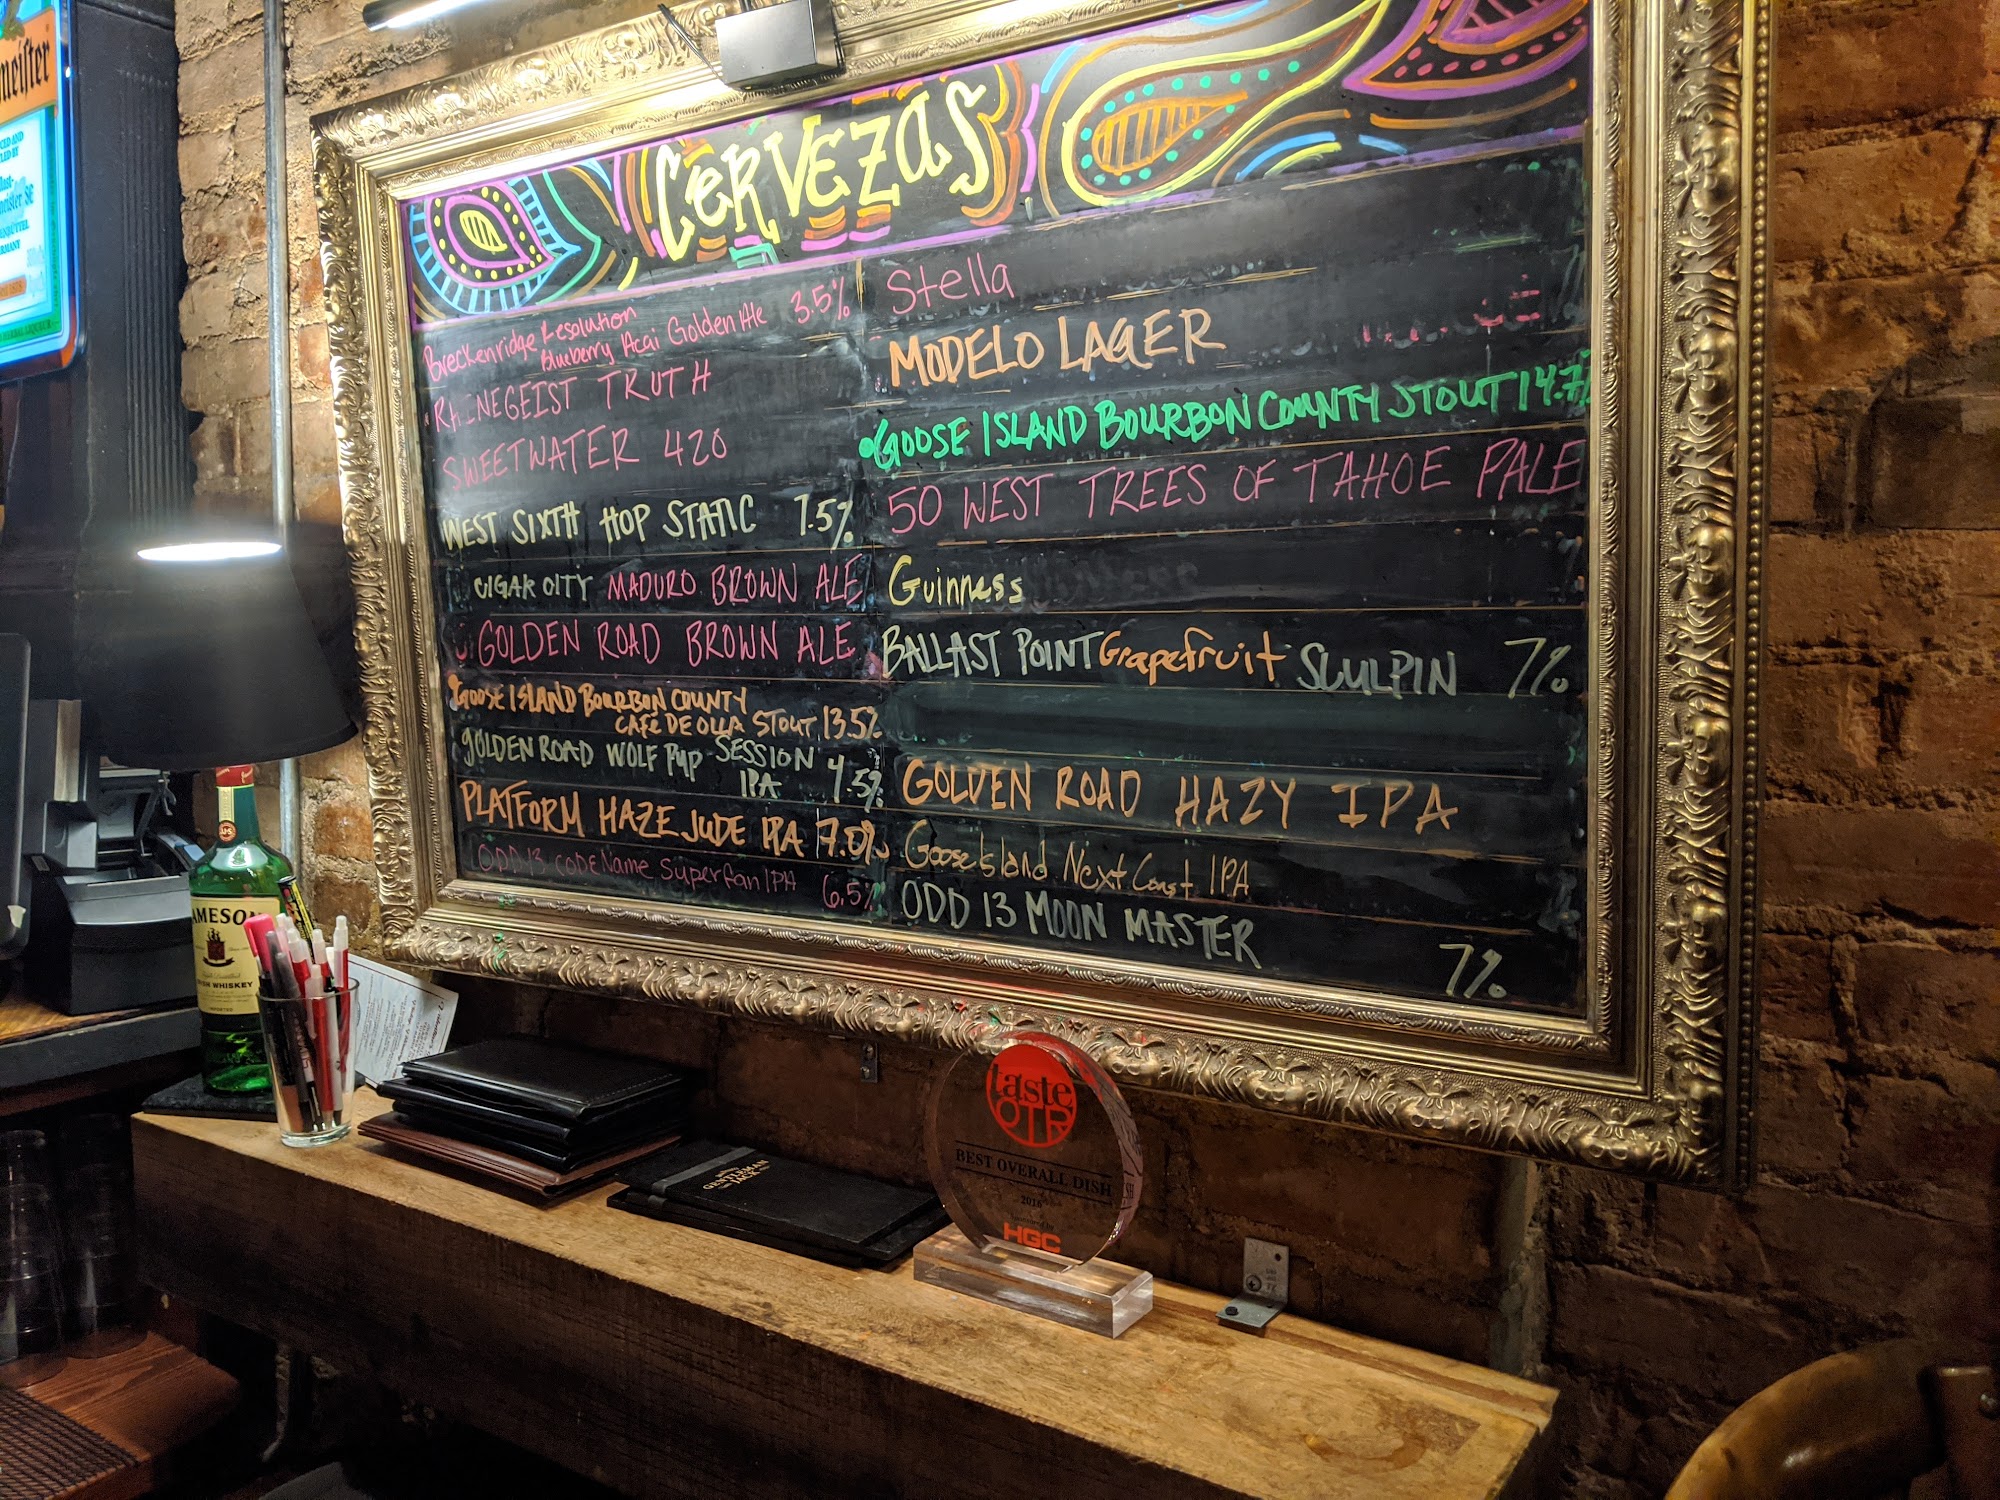 meister
CERVEZAS
Breckenridge Resolution
Blueberry Acai Golden Ale 3.5%
RHINEGEIST TRUTH
SWEETWATER 420
WEST SIXTH HOP STATIC 7.5%
CIGAR CITY MADURO BROWN ALE
GOLDEN ROAD BROWN ALE
GOOSE ISLAND BOURBON COUNTY
CAFÉ DE OLLA STOUT 13.5%
GOLDEN ROAD WOLF PUP SESSION
IPA 4.5%
PLATFORM HAZE JUDE IPA 7.0%
ODD 13 CODE Name Superfan IPA 6.5%
Stella
MODELO LAGER
GOOSE ISLAND BOURBON COUNTY STOUT 14.7%
50 WEST TREES OF TAHOE PALE
Guinness
BALLAST POINT Grapefruit SCULPIN 7%
GOLDEN ROAD HAZY IPA
Goose Island Next Coast IPA
ODD 13 MOON MASTER
7%
JAMESON
IRISH WHISKEY
GENTLEMAN
JACK
taste
OTR
BEST OVERALL DISH
2016
HGC